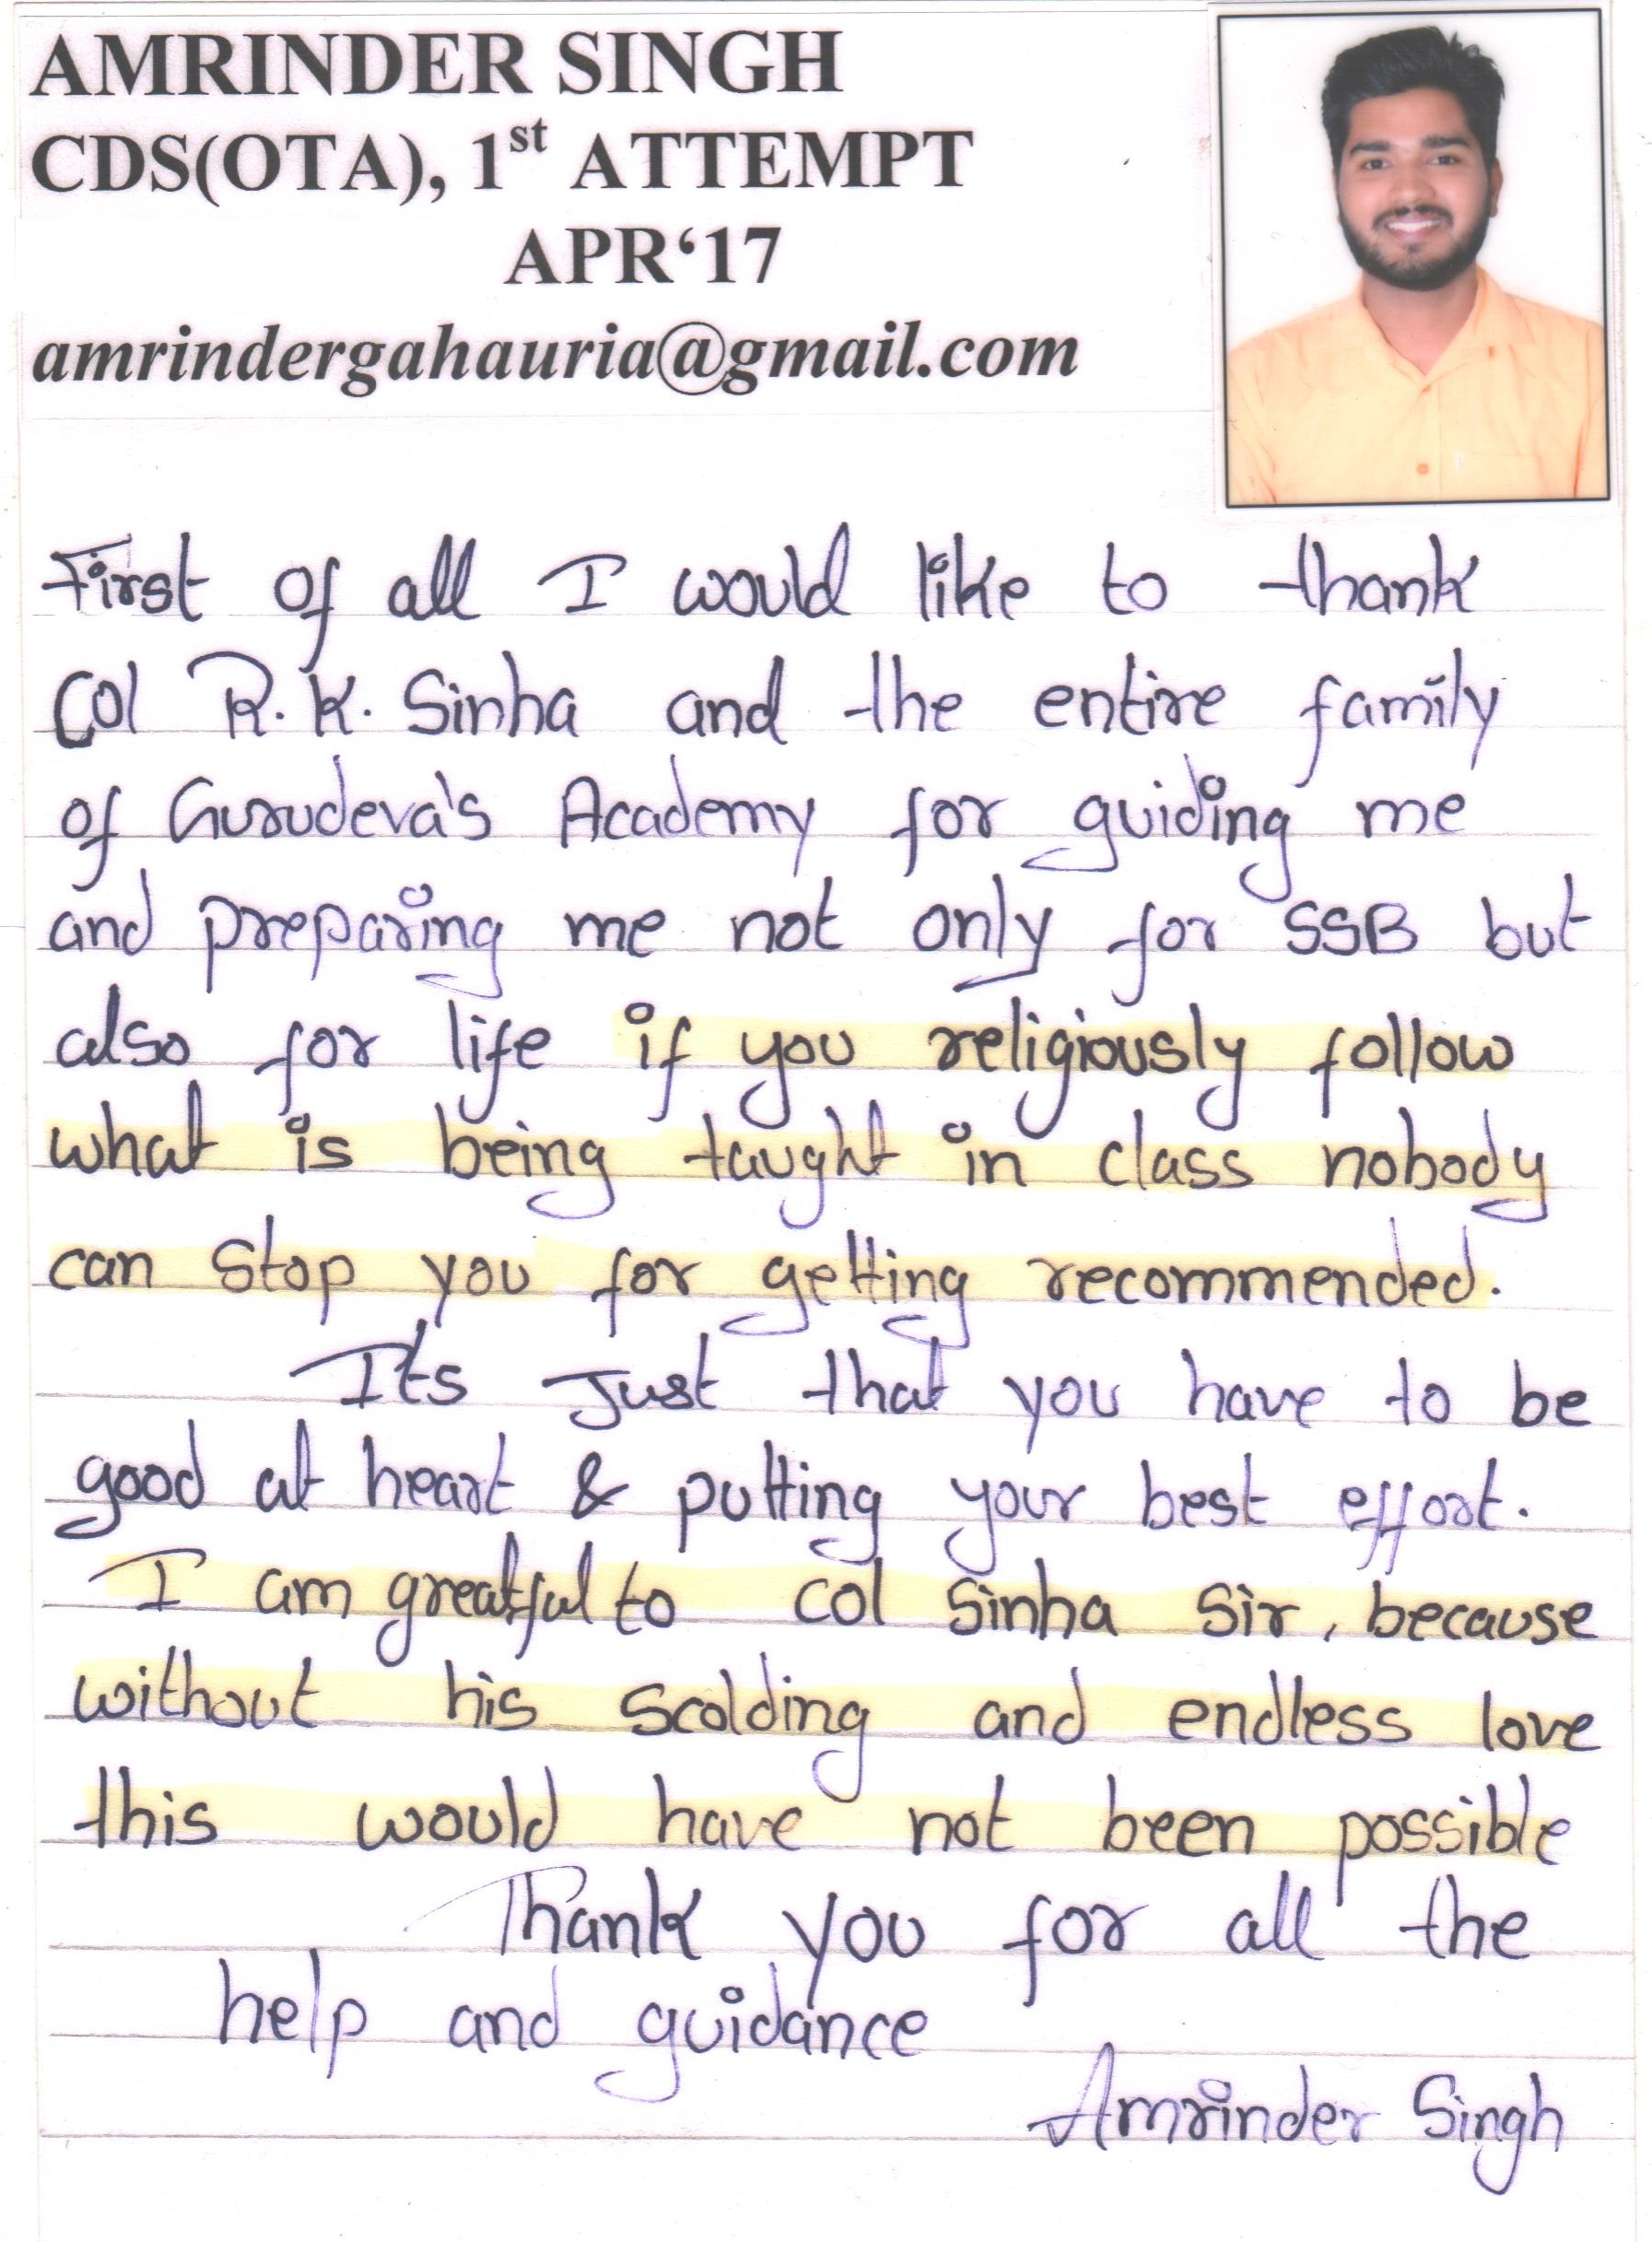 AMRINDER SINGH
CDS(OTA), 1st ATTEMPT
APR‘17
amrindergahauria@gmail.com
First of all I would like to thank
Col R.K. Sinha and the entire family
of Gurudeva's Academy for guiding me
and preparing me not only for SSB but
also for life if you religiously follow
what is being taught in class nobody
can stop you for getting recommended.
It's Just that you have to be
good at heart & putting your best effort.
I am greatful to col Sinha Sir, because
without his scolding and endless love
this would have not been possible
Thank you for all the
help and guidance
Amrinder Singh